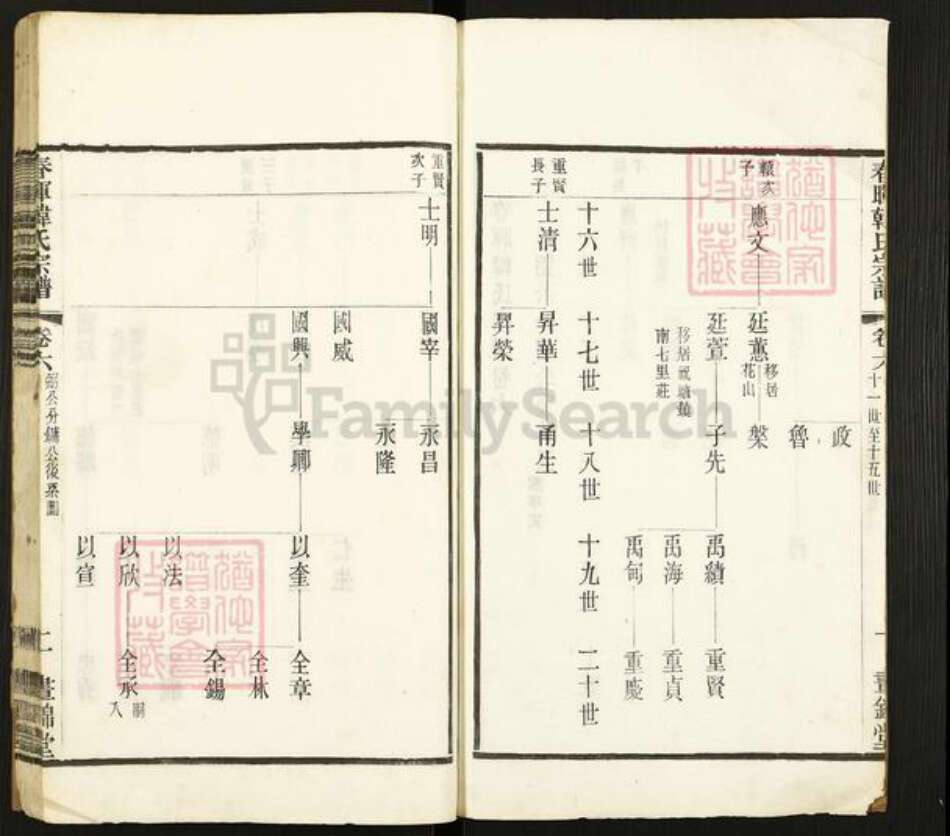 春暉韓氏宗譜
卷六
十一世至十五世
一
晝錦堂
政
魯
次子
應文
廷蕙
移居花山
槃
廷萱
子先
禹績
重賢
禹海
重貞
禹甸
重慶
南七里莊
十六世
十七世
十八世
十九世
二十世
重賢長子
士清
昇華
甬生
昇榮
重賢次子
士明
國宰
永昌
永隆
國威
國興
學卿
以奎
仝章
仝林
仝錫
以法
以欣
仝承
嗣入
以宣
春暉韓氏宗譜
卷六
二
晝錦堂
FamilySearch